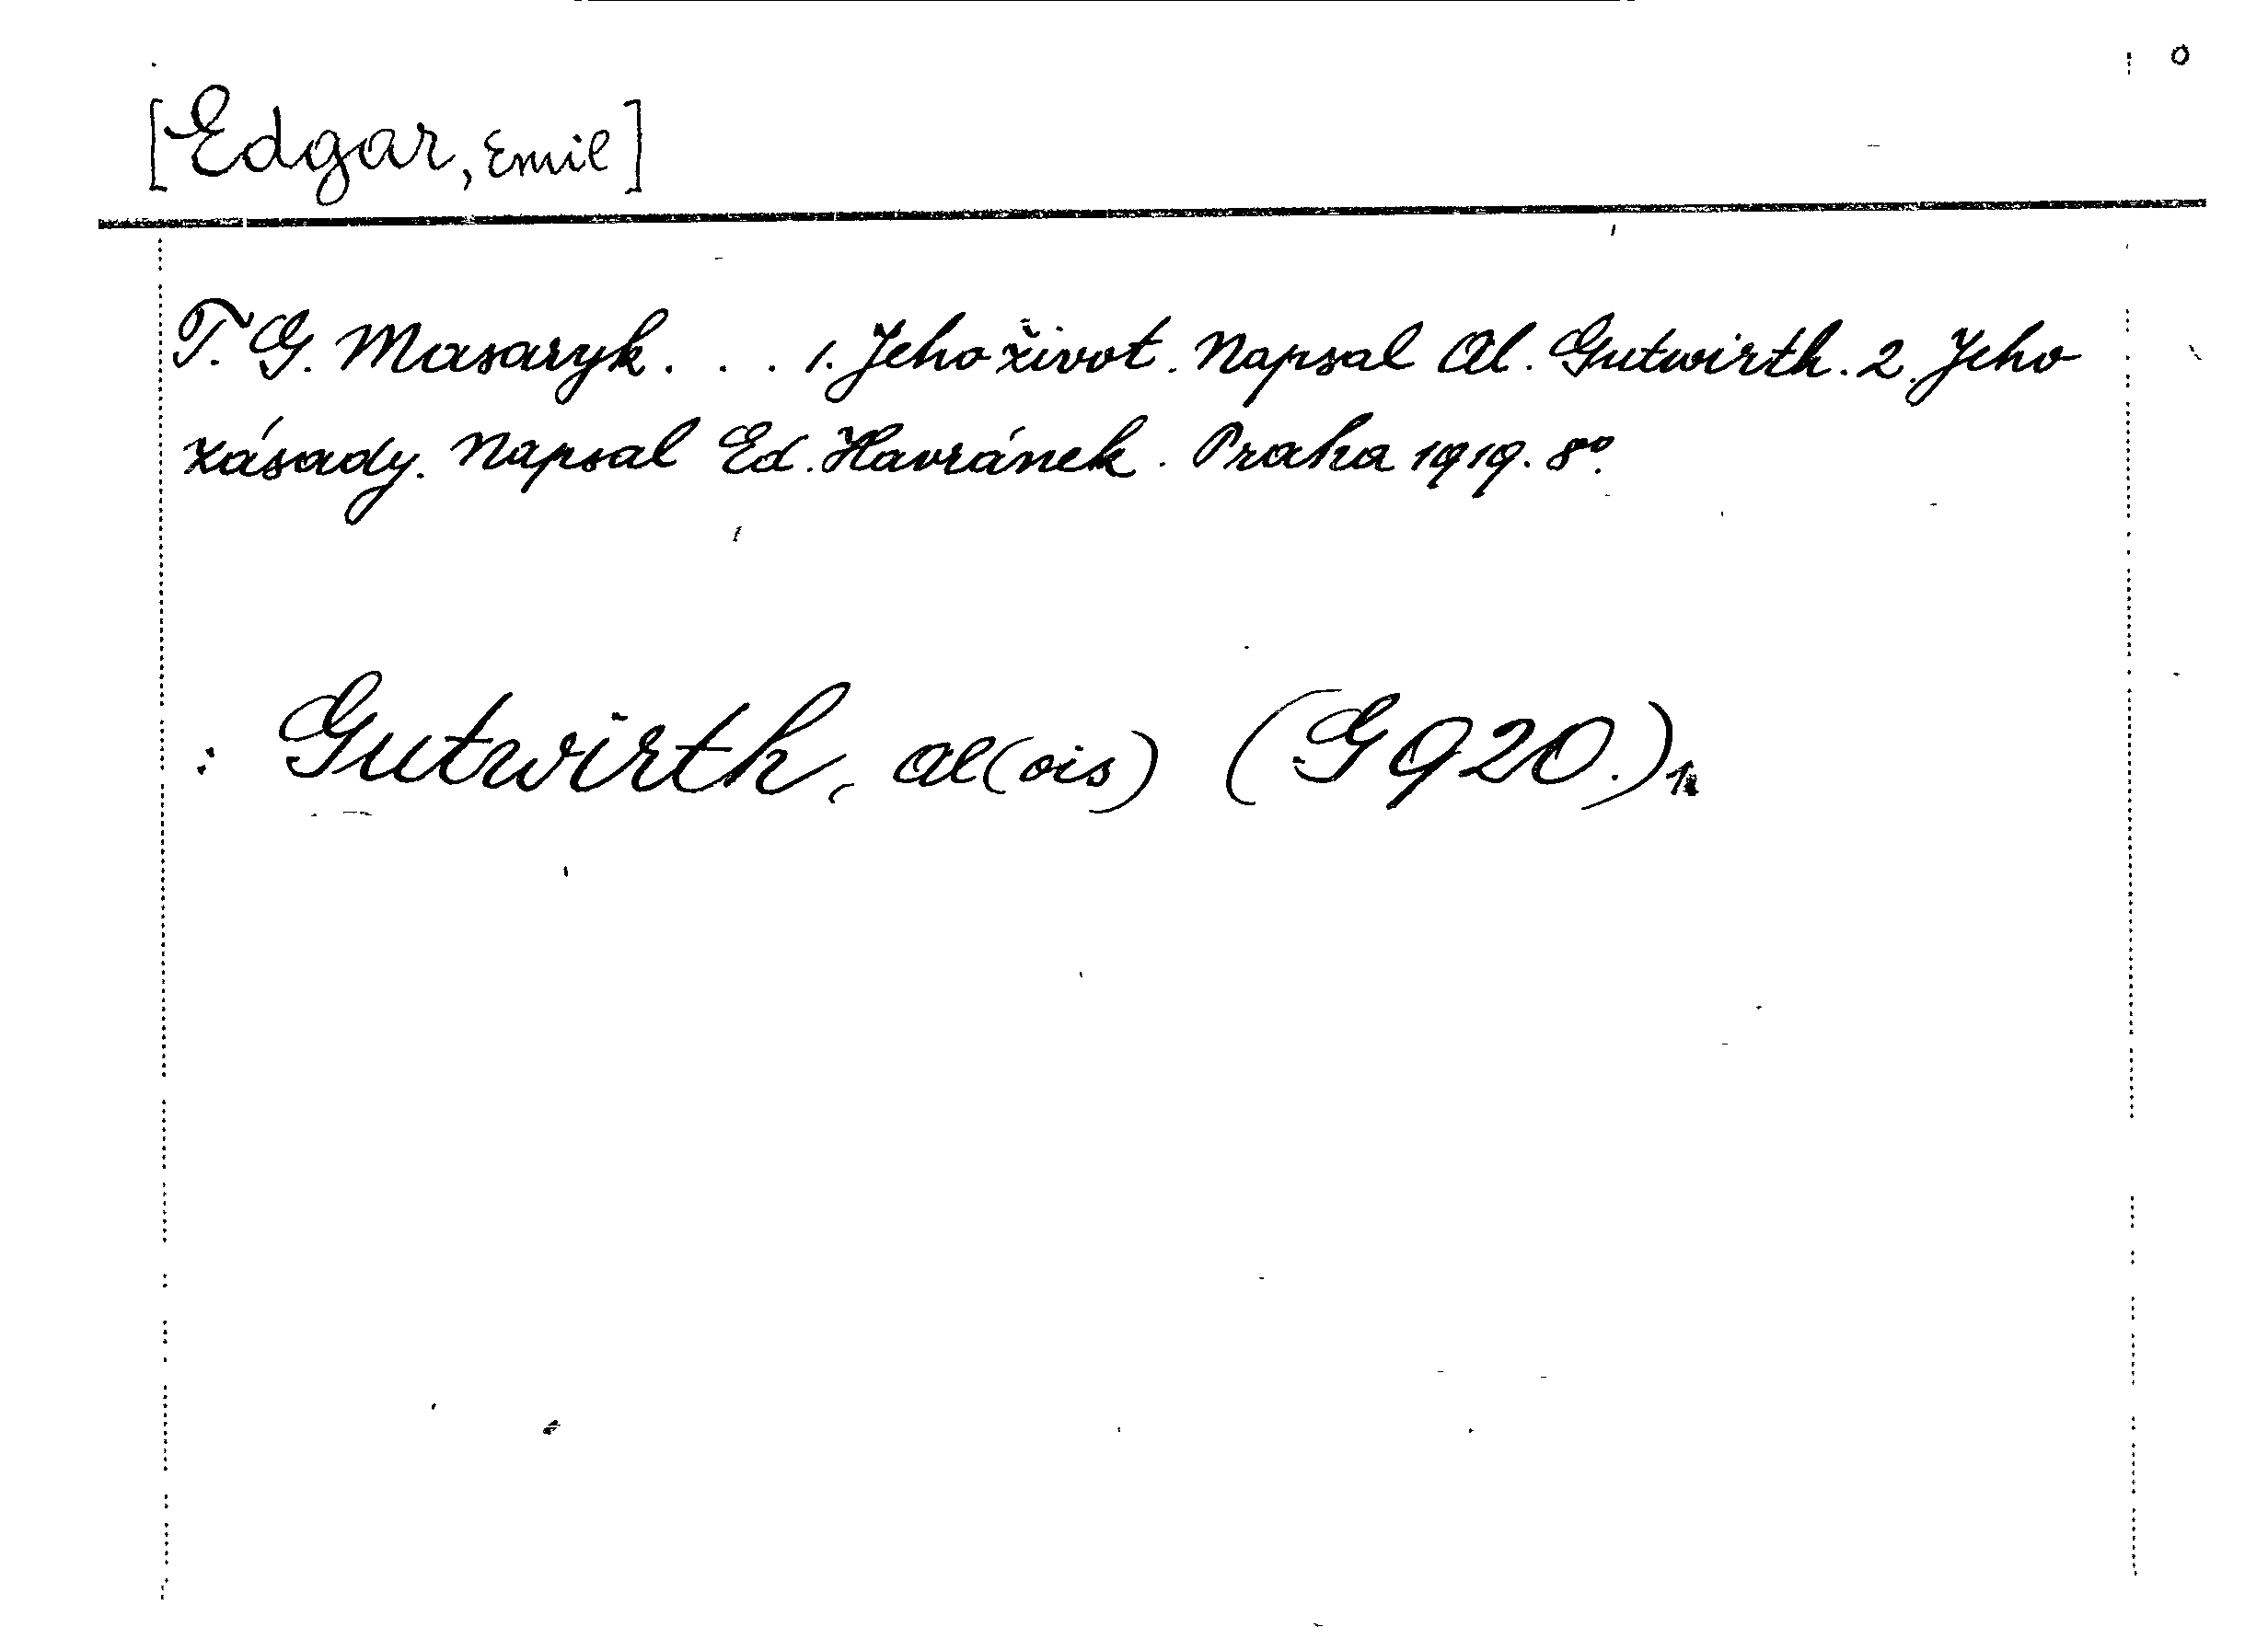 [Edgar, Emil]
T. G. Masaryk. . . 1. Jeho život. Napsal Al. Gutwirth. 2. Jeho
zásady. Napsal Ed. Havránek. Praha 1919. 8°.
: Gutwirth, Al(ois) (G 920.)